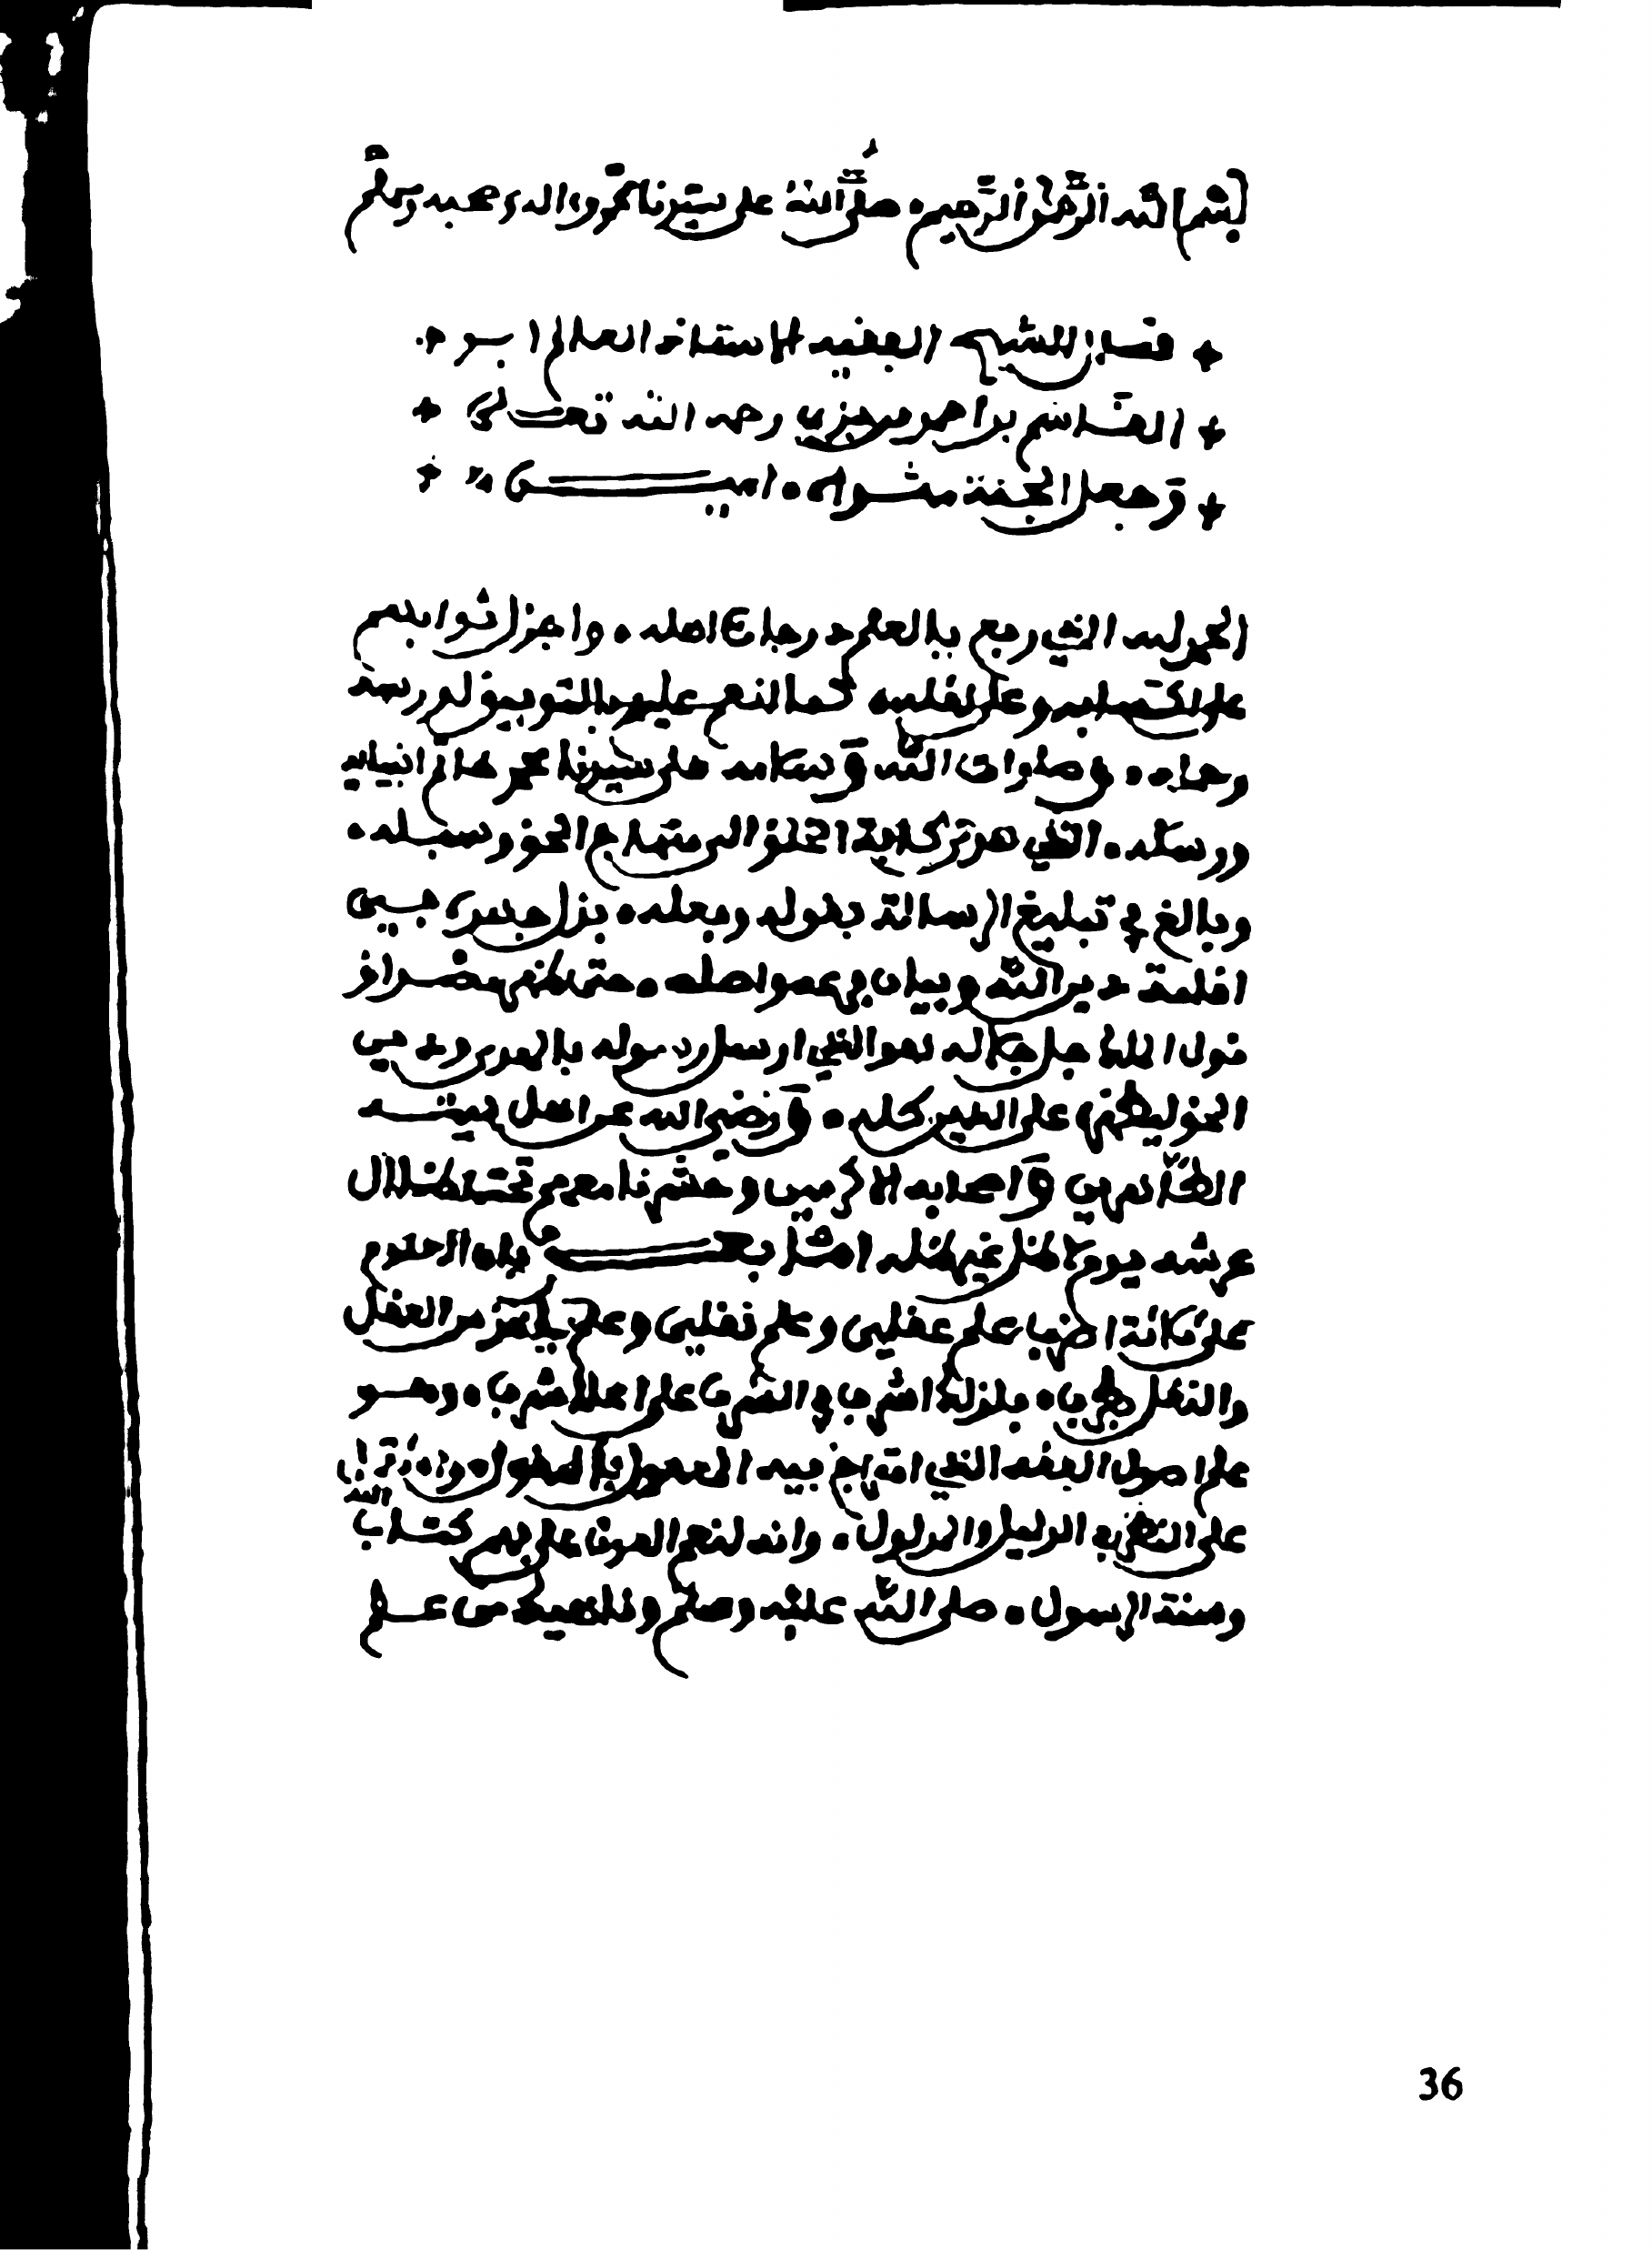 بسم الله الرحمن الرحيم صلى الله على سيدنا محمد وءاله وصحبه وسلم
قال الشيخ الفقيه الاستاذ العالم ابو
القاسم بن احمد بن جزي رحمه الله تعالى
وجعل الجنة مثواه ءامين
الحمد لله الذي رفع بالعلم درجات اهله واجزل ثوابهم
على تحصيله وعلى نقله كما انعم عليهم بالتوفيق لدرسه
وحمله وصلوات الله وسلامه على سيدنا محمد خاتم انبيائه
ورسله الذي هدى كافة الخلق الى منهاج الحق وسبله
وبالغ في تبليغ الرسالة بقوله وفعله بذل جهده في حين
اقامة دين الله وبيان فرعه واصله حتى ظهر مصداق
قول الله جل جلاله هو الذي ارسل رسوله بالهدى ودين
الحق ليظهره على الدين كله ورضي الله عن اهل بيته
الطاهرين واصحابه الاكرمين وحشرنا معهم تحت ظلال
عرشه يوم لا ظل غير ظله اما بعد فان العلوم
على ثلاثة اضرب علم عقلي وعلم نقلي وعلم ياخذ من العقل
والنقل بطرف فلذلك اشرف في الشرف على اعلا شرف وهو
علم اصول الفقه الذي امتزج فيه المعقول بالمنقول واشتمل
على النظر في الدليل والمدلول وانه لنعم العون على فهم كتاب الله
وسنة الرسول صلى الله عليه وسلم وناهيك من علم
36